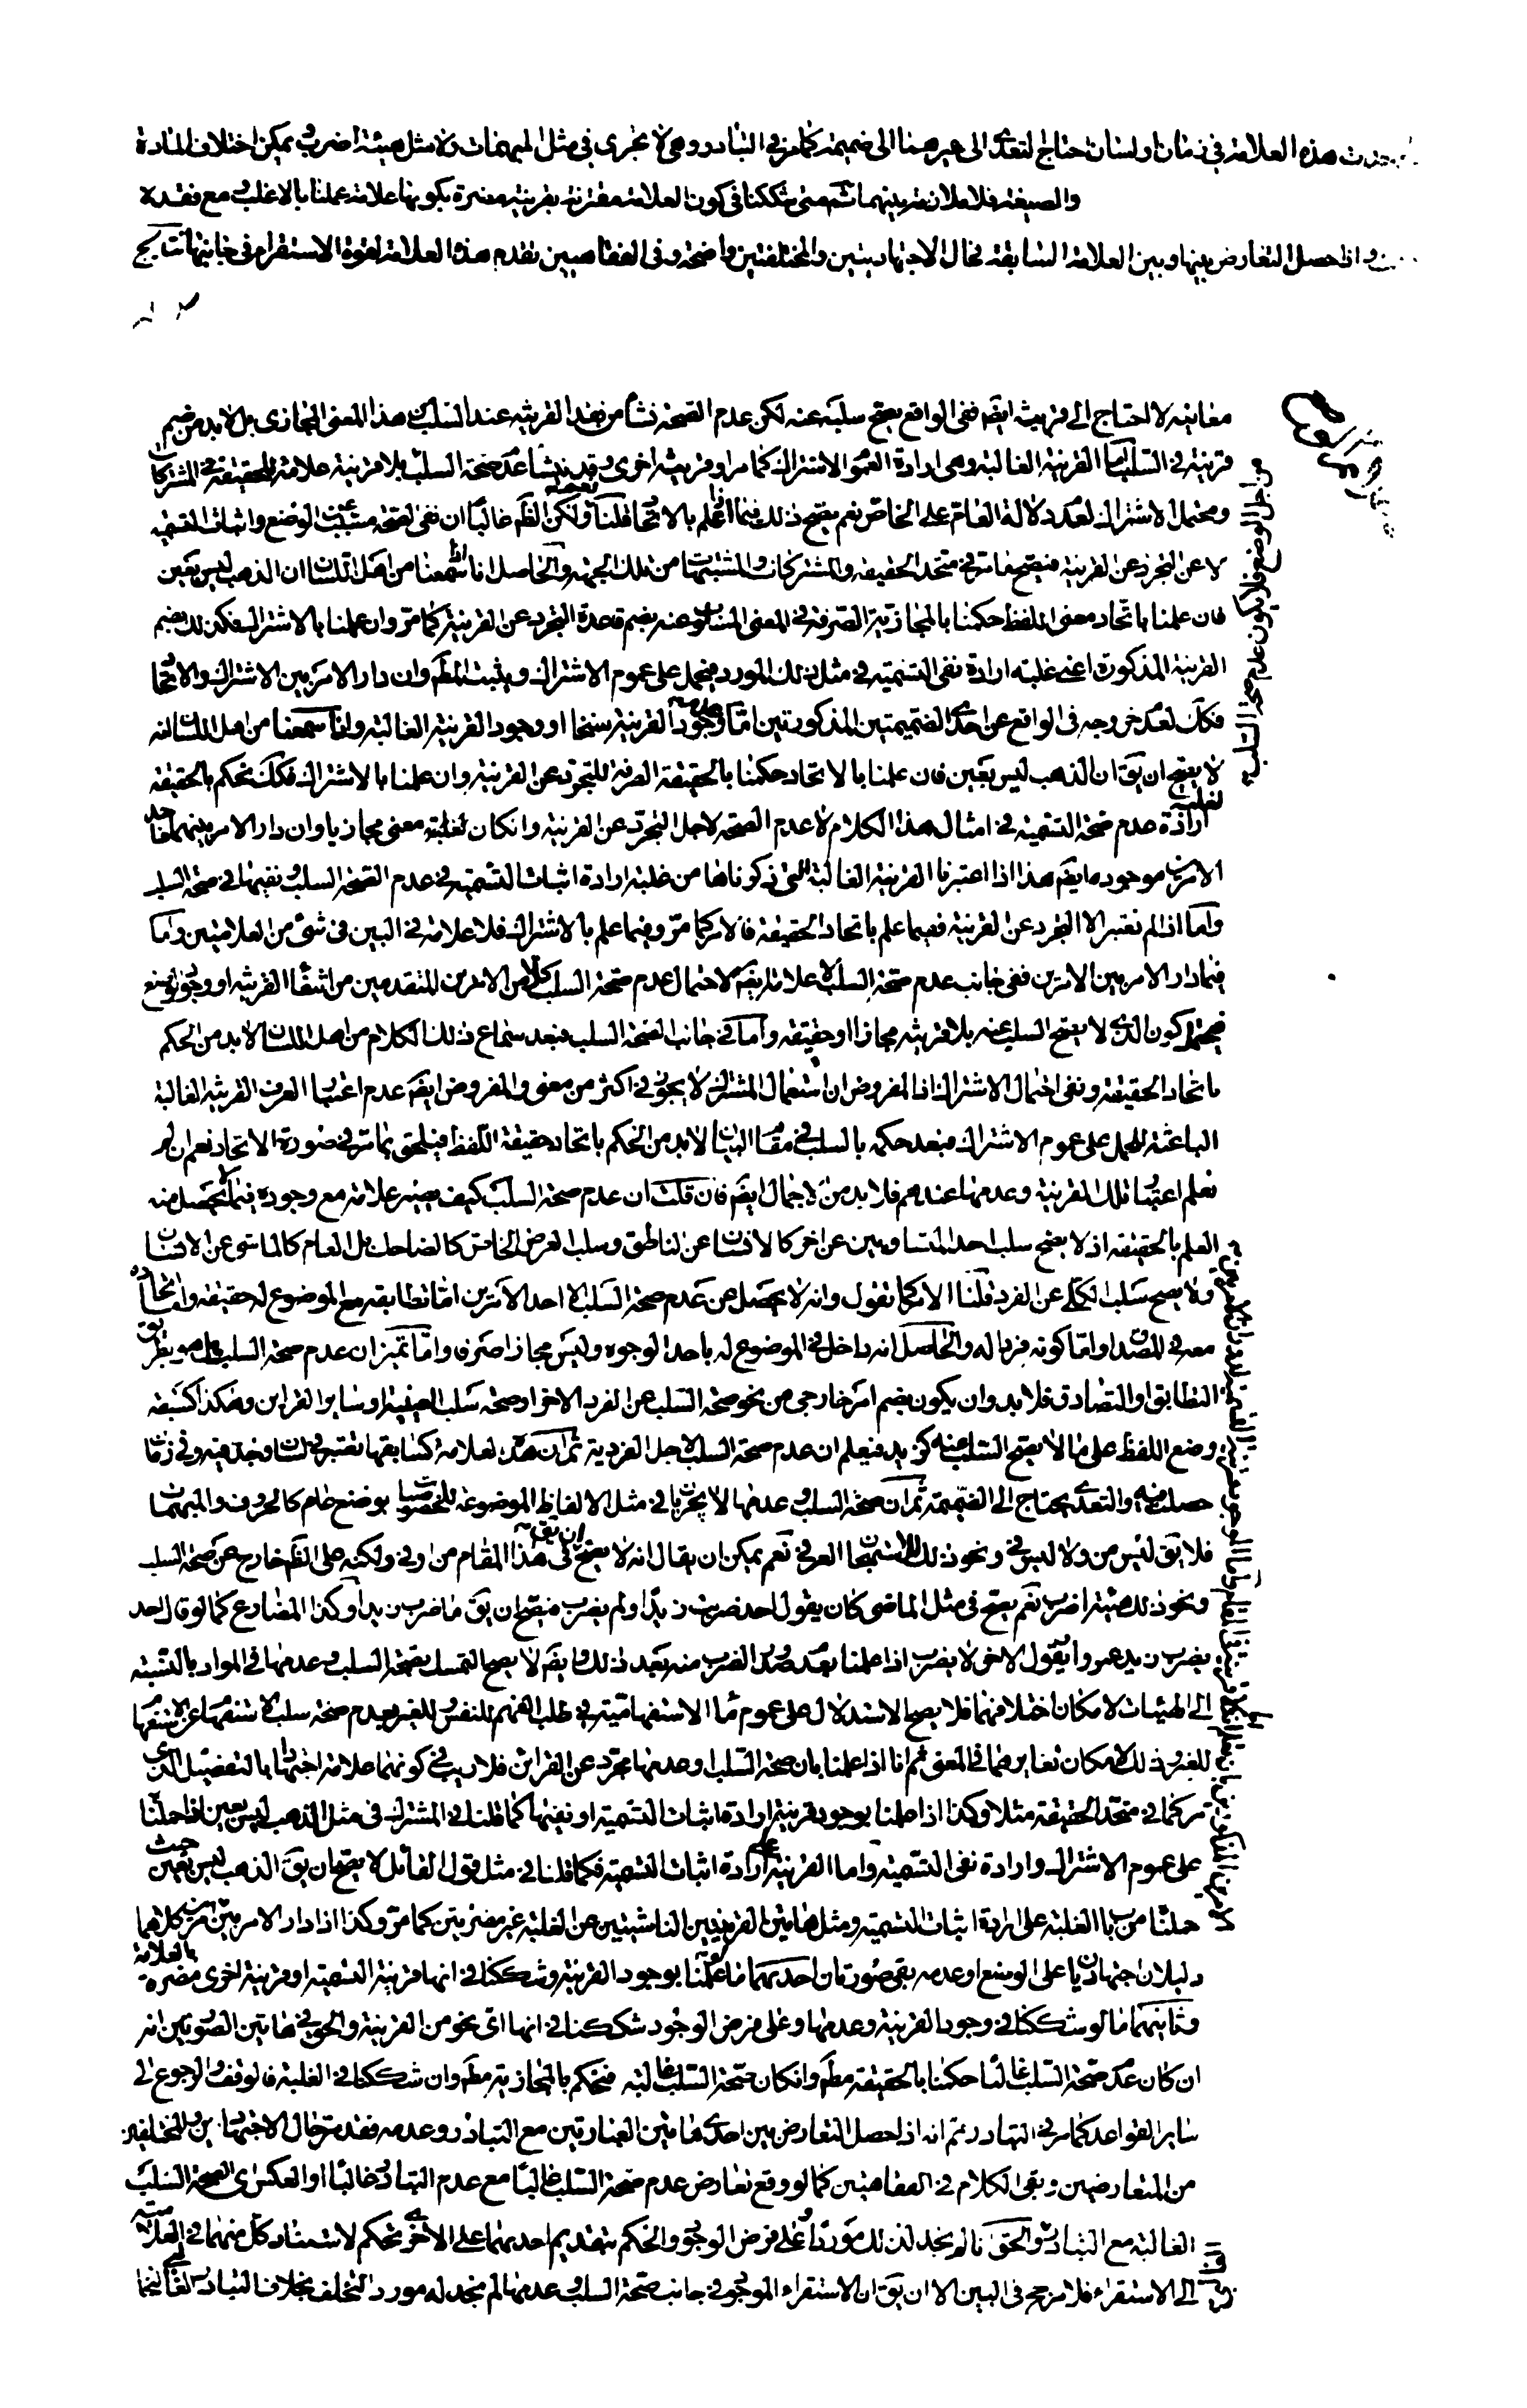 وجدت هذه العلامة في زمان او لسان احتاج لتعدى الى غير هنا الى ضميمة كما مر في التبادر وهى لا تجرى في مثل المبهمات ولا مثل هيئة اضرب ويمكن اختلاف المادة
والصيغة فلا ملازمة بينهما ثم متى شككنا في كون العلامة مقترنة بقرينة مضرة بكونها علامة عملنا بالاغلب ومع فقده لا
واذا حصل التعارض بينها وبين العلامة السابقة فحال الاجتهاديتين والمختلفتين واضحة وفى الفقاهيين تقدم هذه العلامة لقوة الاستقراء في جانبها نتايج
معانيه لاحتاج الى قرينة ايضا ففى الواقع يصح سلبه عنه لكن عدم الصحة نشأ من فقد القرينة عند السلب عن هذا المعنى المجازى بل لا بد من ضم
قرينة في السلب اما القرينة الغالبة وهى ارادة العموم الاشتراك كما مر او قرينة اخرى وقد ينشأ عدم صحة السلب بلا قرينة علامة للحقيقة في المشتركات
ومحتمل الاشتراك لعدم دلالة العام على الخاص نعم يصح ذلك فيما علم بالاتحاد قلنا ولكن الظم غالبا ان نفى الصحة مسبب عن الوضع واثبات التسمية
لا عن التجرد عن القرينة فيصح ما مر في متحد الحقيقة والمشتركات والمشتبهات من تلك الجهة والحاصل انا اذا سمعنا من اهل اللسان ان الذهب ليس بعين
فان علمنا باتحاد معنى اللفظ حكمنا بالمجازية الصرفة في المعنى المسلوب عنه بضم قاعدة التجرد عن القرينة كما مر وان علمنا بالاشتراك فكذلك بضم
القرينة المذكورة اعنى غلبة ارادة نفى التسمية في مثل ذلك المورد فيحمل على عموم الاشتراك ويثبت المطم وان دار الامر بين الاشتراك والاتحاد
فكك لعدم خروجه في الواقع عن احدى الضميمتين المذكورتين اما وجود القرينة سنخا او وجود القرينة الغالبة واذا سمعنا من اهل اللسان انه
لا يصح ان يق ان الذهب ليس بعين فان علمنا بالاتحاد حكمنا بالحقيقة الصرفة للتجرد عن القرينة وان علمنا بالاشتراك فكك نحكم بالحقيقة
لغلبة ارادة عدم صحة التسمية في امثال هذا الكلام لا عدم الصحة لاجل التجرد عن القرينة وان كان لغلبة معنى مجازيا وان دار الامر بينهما فاحد
الامرين موجود ايضا هذا اذا اعتبرنا القرينة الغالبة التى ذكرناها من غلبة ارادة اثبات التسمية في عدم الصحة السلب ونفيها في صحة السلب
واما اذا لم نعتبر الا التجرد عن القرينة ففيما علم باتحاد الحقيقة فالامر كما مر وفيما علم بالاشتراك فلا علامة في البين في شئ من العلامتين واما
فيما دار الامر بين الامرين ففى جانب عدم صحة السلب لا علامة ايضا لاحتمال عدم صحة السلب كلا من الامرين المتقدمين من انتفاء القرينة او وجود الوضع
فيحتمل كون الذى لا يصح السلب عنه بلا قرينة مجازا او حقيقة واما في جانب الصحة السلب فبعد سماع ذلك الكلام من اهل اللسان لا بد من الحكم
باتحاد الحقيقة ونفى احتمال الاشتراك اذ المفروض ان استعمال المشترك لا يجوز في اكثر من معنى والمفروض ايضا عدم اعتبار العرف القرينة الغالبة
الباعثة للحمل على عموم الاشتراك فبعد حكمه بالسلب في مقام البيان لا بد من الحكم باتحاد حقيقة اللفظ فيلحق بما مر في صورة الاتحاد نعم ان لم
نعلم اعتبار تلك القرينة وعدمها عندهم فلا بد من الاجمال ايضا فان قلت ان عدم صحة السلب كيف يصير علامة مع وجوده فيما لا يحصل منه
العلم بالحقيقة اذ لا يصح سلب احد المتساويين عن اخر كالانسان عن الناطق وسلب العرض الخاص كالضاحك بل العام كالماشى عن الانسان
ولا يصح سلب الكلى عن الفرد قلنا الامر كما تقول وانه لا يحصل من عدم صحة السلب الا احد الامرين اما تطابقه مع الموضوع له حقيقة واما اتحاده
معه في المصداق واما كونه فردا له والحاصل انه داخل في الموضوع له باحد الوجوه وليس مجازا صرفا واما تميز ان عدم صحة السلب هل هو بطريق
التطابق او التصادق فلا بد وان يكون بضم امر خارجى من نحو صحة السلب عن الفرد الاخر او صحة سلب الصفة او ساير القراين وهكذا كشفه
وضع اللفظ على ما لا يصح السلب عنه كزيد فيعلم ان عدم صحة السلب لاجل الفردية ثم ان هذه العلامة كسابقها يعتبر في لسان وجد فيه وفى زمان
حصلت فيه والتعدى يحتاج الى الضميمة ثم ان صحة السلب وعدمها لا يجريان في مثل الالفاظ الموضوعة للخصوصيات بوضع عام كالحروف والمبهمات
فلا يق ليس من ولا ليس في ونحو ذلك للاستهجان العرفى نعم يمكن ان يقال انه لا يصح ان يق في هذا المقام من او في ولكنه على الظم خارج عن صحة السلب
ونحو ذلك هيئة اضرب نعم يصح في مثل الماضى كان يقول احد ضربت زيدا ولم يضرب فيصح ان يق ما ضرب زيدا وكذا المضارع كما لو قال احد
يضرب زيد عمروا يقول الاخر لا يضرب اذا علمنا بعدم صدور الضرب منه بعد ذلك وايضا لا يصح التمسك بصحة السلب وعدمها في المواد بالنسبة
الى الهيئات لامكان اختلافهما فلا يصح الاستدلال على عموم ما الاستفهامية في طلب الفهم للنفس وللغير بعدم صحة سلب الاستفهام عن الاستفهام
للغير وذلك لامكان تغايرهما في المعنى ثم انا اذا علمنا بان صحة السلب او عدمها مجرد عن القرائن فلا ريب في كونهما علامة اجتهادا بالتفصيل الذى
مر كما في متحد الحقيقة مثلا وكذا اذا علمنا بوجود قرينة ارادة اثبات التسمية او نفيها كما قلنا في المشترك في مثل الذهب ليس بعين اذا حملنا
على عموم الاشتراك وارادة نفى التسمية واما القرينة على ارادة اثبات التسمية فكما قلنا في مثل قول القائل لا يصح ان يق الذهب ليس بعين حيث
حملنا من باب الغلبة على ارادة اثبات التسمية ومثل هاتين القرينتين الناشئتين عن الغلبة غير مضرتين كما مر وكذا اذا دار الامر بين امرين كلاهما
دليلان اجتهاديان على الوضع او عدمه بقى صورتان احديهما ما علمنا بوجود القرينة وشككنا في انها قرينة التسمية او قرينة اخرى مضرة بالعلامة
وثانيهما ما لو شككنا في وجود القرينة وعدمها وعلى فرض الوجود شككنا في انها اى نحو من القرينة والحق في هاتين الصورتين انه
ان كان عدم صحة السلب غالبا حكمنا بالحقيقة مطم وان كان صحة السلب غالبة فنحكم بالمجازية مطم وان شككنا في الغلبة فالوقف والرجوع الى
ساير القواعد كما مر في التبادر ثم انه اذا حصل التعارض بين احدى هاتين العبارتين مع التبادر وعدمه فقد مر حال الاجتهاديين والمختلفين
من المتعارضين وبقى الكلام في الفقاهيين كما لو وقع تعارض عدم صحة السلب غالبا مع عدم التبادر غالبا او العكس اى الصحة السلب
الغالبة مع التبادر والحق انا لم نجد لذلك موردا وعلى فرض الوجود والحكم بتقديم احديهما على الاخرى تحكم لاستناد كل منهما في العلامتية
الى الاستقراء فلا مرجح في البين الا ان يق ان الاستقراء الموجود في جانب صحة السلب وعدمها لم نجد له مورد التخلف بخلاف التبادر الغالبى
من اجل الوضع فلا يكون عدم صحة السلب